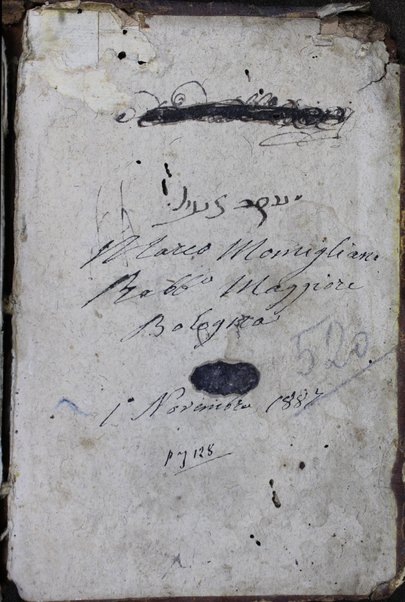 Marco Momigliano
Rabb.º Maggiore
Bologna
520
1º Novembre 1887
pg 128